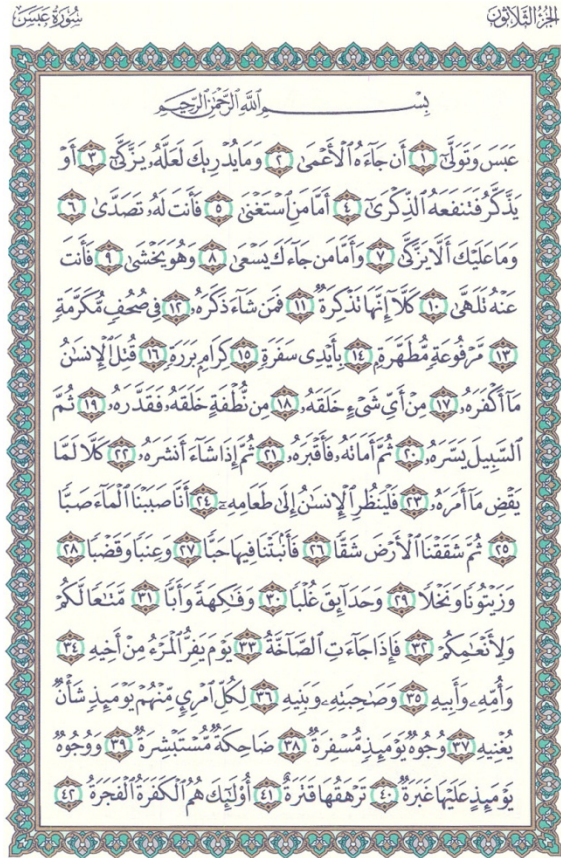 الجزء الثلاثون
سورة عبس
بِسْمِ اللَّهِ الرَّحْمَٰنِ الرَّحِيمِ
عَبَسَ وَتَوَلَّىٰٓ ١ أَن جَآءَهُ ٱلْأَعْمَىٰ ٢ وَمَا يُدْرِيكَ لَعَلَّهُۥ يَزَّكَّىٰٓ ٣ أَوْ
يَذَّكَّرُ فَتَنفَعَهُ ٱلذِّكْرَىٰٓ ٤ أَمَّا مَنِ ٱسْتَغْنَىٰ ٥ فَأَنتَ لَهُۥ تَصَدَّىٰ ٦
وَمَا عَلَيْكَ أَلَّا يَزَّكَّىٰ ٧ وَأَمَّا مَن جَآءَكَ يَسْعَىٰ ٨ وَهُوَ يَخْشَىٰ ٩ فَأَنتَ
عَنْهُ تَلَهَّىٰ ١٠ كَلَّآ إِنَّهَا تَذْكِرَةٌ ١١ فَمَن شَآءَ ذَكَرَهُۥ ١٢ فِى صُحُفٍ مُّكَرَّمَةٍ
١٣ مَّرْفُوعَةٍ مُّطَهَّرَةٍۭ ١٤ بِأَيْدِى سَفَرَةٍ ١٥ كِرَامٍۭ بَرَرَةٍ ١٦ قُتِلَ ٱلْإِنسَٰنُ
مَآ أَكْفَرَهُۥ ١٧ مِنْ أَىِّ شَىْءٍ خَلَقَهُۥ ١٨ مِن نُّطْفَةٍ خَلَقَهُۥ فَقَدَّرَهُۥ ١٩ ثُمَّ
ٱلسَّبِيلَ يَسَّرَهُۥ ٢٠ ثُمَّ أَمَاتَهُۥ فَأَقْبَرَهُۥ ٢١ ثُمَّ إِذَا شَآءَ أَنشَرَهُۥ ٢٢ كَلَّا لَمَّا
يَقْضِ مَآ أَمَرَهُۥ ٢٣ فَلْيَنظُرِ ٱلْإِنسَٰنُ إِلَىٰ طَعَامِهِۦٓ ٢٤ أَنَّا صَبَبْنَا ٱلْمَآءَ صَبًّا
٢٥ ثُمَّ شَقَقْنَا ٱلْأَرْضَ شَقًّا ٢٦ فَأَنۢبَتْنَا فِيهَا حَبًّا ٢٧ وَعِنَبًا وَقَضْبًا ٢٨
وَزَيْتُونًا وَنَخْلًا ٢٩ وَحَدَآئِقَ غُلْبًا ٣٠ وَفَٰكِهَةً وَأَبًّا ٣١ مَّتَٰعًا لَّكُمْ
وَلِأَنْعَٰمِكُمْ ٣٢ فَإِذَا جَآءَتِ ٱلصَّآخَّةُ ٣٣ يَوْمَ يَفِرُّ ٱلْمَرْءُ مِنْ أَخِيهِ ٣٤
وَأُمِّهِۦ وَأَبِيهِ ٣٥ وَصَٰحِبَتِهِۦ وَبَنِيهِ ٣٦ لِكُلِّ ٱمْرِئٍ مِّنْهُمْ يَوْمَئِذٍ شَأْنٌ
يُغْنِيهِ ٣٧ وُجُوهٌ يَوْمَئِذٍ مُّسْفِرَةٌ ٣٨ ضَاحِكَةٌ مُّسْتَبْشِرَةٌ ٣٩ وَوُجُوهٌ
يَوْمَئِذٍ عَلَيْهَا غَبَرَةٌ ٤٠ تَرْهَقُهَا قَتَرَةٌ ٤١ أُو۟لَٰٓئِكَ هُمُ ٱلْكَفَرَةُ ٱلْفَجَرَةُ ٤٢